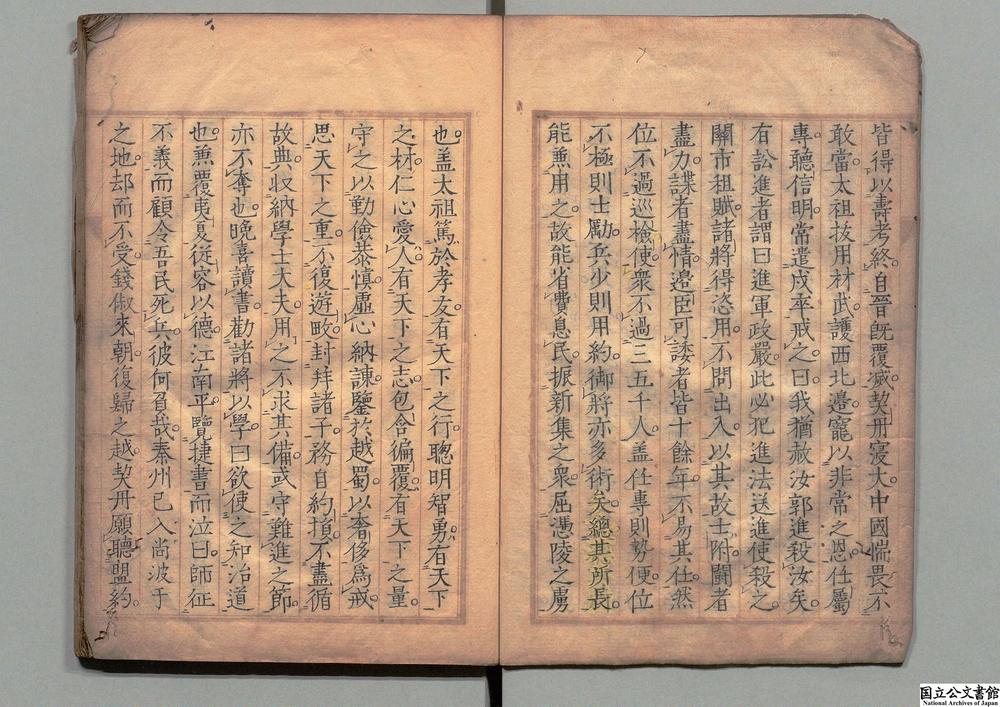 皆得以壽考終自晉旣覆滅契丹寖大中國惴畏不
敢當太祖拔用材武護西北邊寵以非常之恩任屬
專聽信明常遣戍卒戒之曰我猶赦汝郭進殺汝矣
有訟進者謂曰進軍政嚴此必犯進法送進使殺之
關市租賦諸將得恣用不問出入以其故士附鬪者
盡力諜者盡情邊臣可諉者皆十餘年不易其任然
位不過巡檢使衆不過三五千人盖任專則勢便位
不極則士勵兵少則用約御將亦多術矣總其所長
能兼用之故能省費息民振新集之衆屈憑陵之虜
也盖太祖篤於孝友有天下之行聰明智勇有天下
之材仁心愛人有天下之志包含徧覆有天下之量
守之以勤儉恭慎虛心納諫鑒於越蜀以奢侈爲戒
思天下之重不復遊畋封拜諸子務自約損不盡循
故典収納學士大夫用之不求其備或守難進之節
亦不奪也晚喜讀書勸諸將以學曰欲使之知治道
也兼覆夷夏從容以德江南平覽捷書而泣曰師征
不義而顧令吾民死兵彼何負哉秦州已入尚波于
之地却而不受錢俶來朝復歸之越契丹願聽盟約
国立公文書館
National Archives of Japan